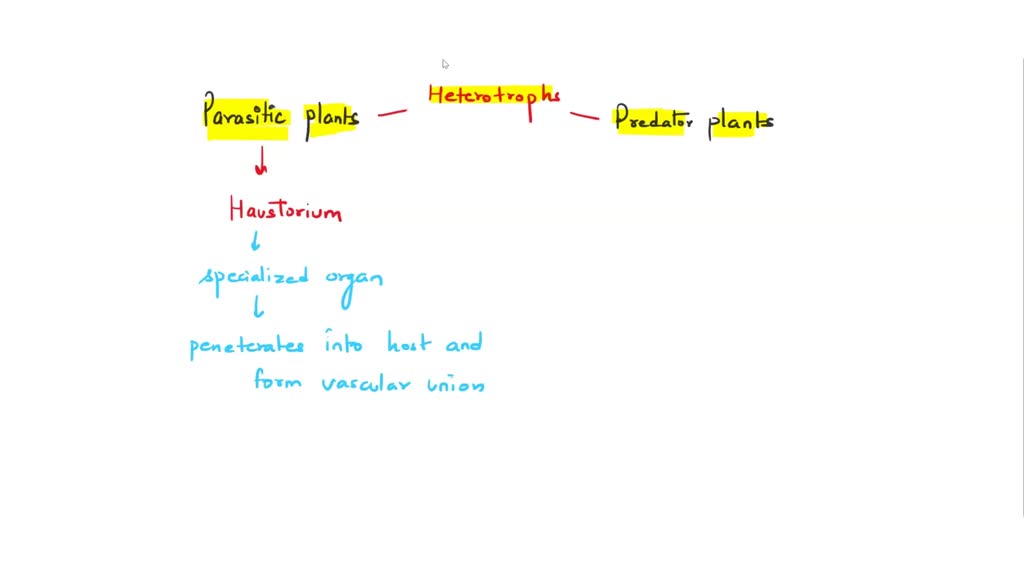 Heterotrophs
Parasitic plants
Predator plants
Haustorium
specialized organ
peneterates into host and
form vascular union